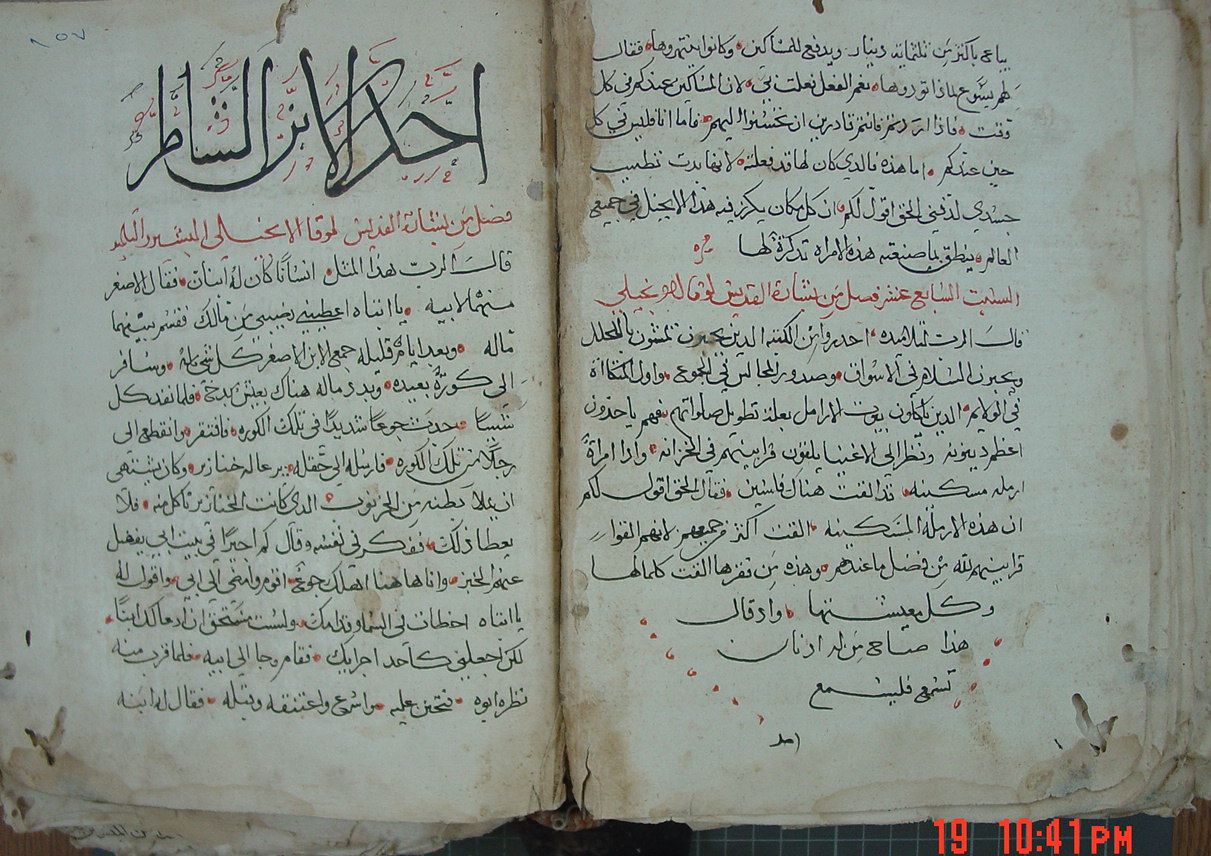 يباع باكثر من ثلثماية دينار ويدفع للمساكين وكانوا ينتهروها فقال
لهم يسوع لماذا توذوها نعم الفعل فعلت بي لان المساكين عندكم في كل
وقت فاذا اردتم فانتم قادرين ان تحسنوا اليهم فاما انا فليس في كل
حين عندكم اما هذه فالدي كان لها قد فعلته لانها بدت تطييب
جسدي لدفني الحق اقول لكم ان كل مكان يكرز فيه هدا الانجيل في جميع
العالم ينطق بما صنعته هذه الامراه تدكرة لها
السبت السابع عشر فصل من بشارة القديس لوقا الانجيلي
قال الرب لتلاميذه احدروا من الكتبه الدين يحبون تمشون بالحلل
ويحبون السلام في الاسواق وصدور المجالس في الجموع واول المتكاة
في الولايم الدين ياكلون بيوت الارامل بعلة تطويل صلواتهم فهم ياخدون
اعظم دينونه ونظر الى الاغنيا يلقون قرابينهم في الخزانه وادا امراة
ارمله مسكينه قد القت هناك فلسين فقال الحق اقول لكم
ان هذه الارملة المسكينه القت اكثر من جميعهم لانهم القوا
قرابينهم لله من فضل ما عندهم وهذه من فقرها القت كلما لها
وكل معيشتها واد قال
هذا صاح من له ادنان
تسمع فليسمع
احد
٨٥٧
احد الابن الشاطر
فصل من بشارة القديس لوقا الانجيلي البشير والتلميد
قال الرب هذا المثل انسانا كان له ابنان فقال الاصغر
منهما لابيه يا ابتاه اعطيني نصيبي من مالك فقسم بينهما
ماله وبعد ايام قليله جمع الابن الاصغر كل شي له وسافر
الى كورة بعيده وبدد ماله هناك بعيش بدخ فلما نفد كل
شيا حدت جوعا شديدا في تلك الكوره فافتقر وانقطع الى
رجلا من تلك الكوره فارسله الى حقله يرعا له خنازير وكان يشتهي
ان يملا بطنه من الخرنوب الدي كانت الخنازير تاكل منه فلا
يعطا ذلك ففكر في نفسه وقال كم اجيرا في بيت ابي يفضل
عنهم الخبز وانا هاهنا اهلك جوع اقوم وامضي الى ابي واقول له
يا ابتاه اخطات في السما وقدامك ولست مستحق ان ادعا لك ابنا
لكن اجعلني كاحد اجرايك فقام وجا الى ابيه فلما قرب منه
نظره ابوه فتحنن عليه واسرع واعتنقه وقبله فقال له ابنه
19 10:41 PM